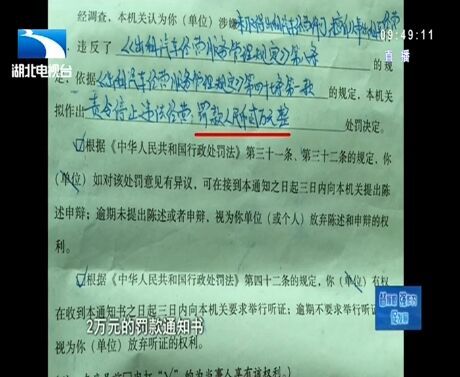 09:49:11
直播
湖北电视台
经调查,本机关认为你(单位)涉嫌未取得出租汽车经营许可,擅自从事出租经营
,违反了《出租汽车经营服务管理规定》第八条的规
定,依据《出租汽车经营服务管理规定》第四十七条第一款的规定,本机关
拟作出责令停止违法经营,罚款人民币贰万元整处罚决定。
☑根据《中华人民共和国行政处罚法》第三十一条、第三十二条的规定,你
(单位)如对该处罚意见有异议,可在接到本通知之日起三日内向本机关提出陈
述申辩;逾期未提出陈述或者申辩,视为你单位(或个人)放弃陈述和申辩的权
利。
☑根据《中华人民共和国行政处罚法》第四十二条的规定,你(单位)有权
在收到本通知书之日起三日内向本机关要求举行听证;逾期不要求举行听证
视为你(单位)放弃听证的权利。
2万元的罚款通知书
"√"的为当事人享有该权利。)